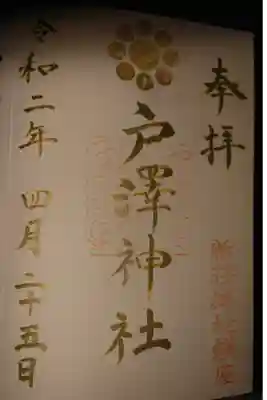 奉拝
戸澤神社
令和二年 四月二十五日